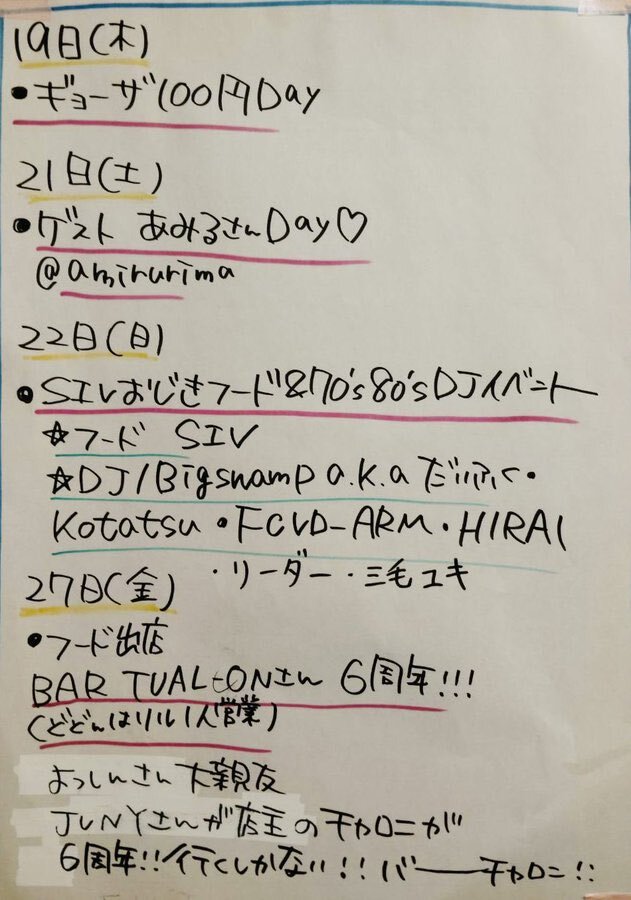 19日(木)
・ギョーザ100円Day
21日(土)
・ゲスト あみるさんDay♡
@amirurima
22日(日)
・SIVおじきフード&70's80'sDJイベント
☆フード SIV
☆DJ/Bigswamp a.k.a だいふく・
Kotatsu・FCVD-ARM・HIRAI
・リーダー・三毛ユキ
27日(金)
・フード出店
BAR TUAL-ONさん 6周年!!!
(どどんはリルイ人営業)
よっしんさん大親友
JUNYさんが店主のチャロニが
6周年!!行くしかない!! バーーチャロニ!!